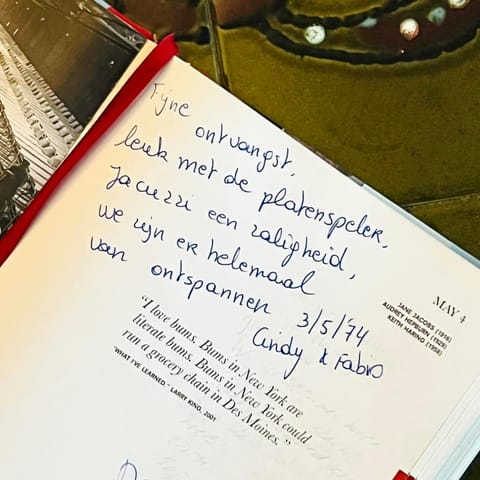 Fijne
ontvangst,
leuk met de platenspeler,
Jacuzzi een zaligheid,
we zijn er helemaal
van ontspannen 3/5/'74
Cindy & Fabio
MAY 4
JANE JACOBS (1916)
AUDREY HEPBURN (1929)
KEITH HARING (1958)
“I love bums. Bums in New York are
literate bums. Bums in New York could
run a grocery chain in Des Moines.”
“WHAT I'VE LEARNED,” LARRY KING, 2001